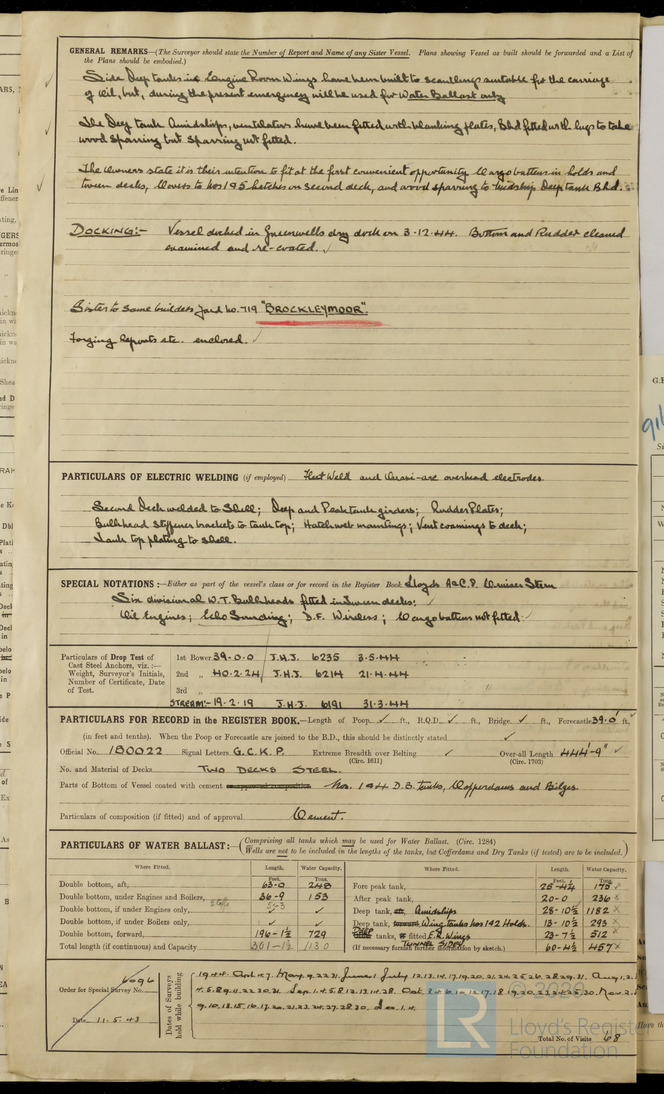 GENERAL REMARKS—(The Surveyor should state the Number of Report and Name of any Sister Vessel. Plans showing Vessel as built should be forwarded and a List of
the Plans should be embodied.)
Side Deep tanks in Engine Room Wings have been built to scantlings suitable for the carriage
of oil, but, during the present emergency will be used for Water Ballast only
The Deep tank Amidships, ventilators have been fitted with blanking plates, Bhd fitted with lugs to take
wood sparring but sparring not fitted.
The Owners state it is their intention to fit at the first convenient opportunity Cargo battens in holds and
tween decks, Covers to Nos 1 & 5 hatches on second deck, and wood sparring to midship Deep tank Bhd.
DOCKING:- Vessel docked in Greenwells dry dock on 3-12-44. Bottom and Rudder cleaned
examined and re-coated.
Sister to same builders Yard No. 719 "BROCKLEYMOOR".
Forging Reports etc. enclosed.
PARTICULARS OF ELECTRIC WELDING (if employed) and overhead electrodes
Second Deck welded to Shell; Deep and Peak tank girders; Rudder Plates;
Bulkhead stiffener brackets to tank top; Hatch web mountings; Vent coamings to deck;
Tank top plating to shell.
SPECIAL NOTATIONS:—Either as part of the vessel's class or for record in the Register Book Lloyds A & C.P. Cruiser Stern
Six divisional W.T. Bulkheads fitted in tween decks.
Oil Engines; Echo Sounding; D.F. Wireless; Cargo battens not fitted.
Particulars of Drop Test of Cast Steel Anchors, viz.:— Weight, Surveyor's Initials, Number of Certificate, Date of Test.
1st Bower 39-0-0 J.H.J. 6235 3-5-44
2nd „ 40-2-24 J.H.J. 6214 21-4-44
3rd „
STREAM:- 19-2-19 J.H.J. 6191 31-3-44
PARTICULARS FOR RECORD in the REGISTER BOOK.—Length of Poop ✓ ft., R.Q.D. ✓ ft., Bridge ✓ ft., Forecastle 39.0 ft.
(in feet and tenths). When the Poop or Forecastle are joined to the B.D., this should be distinctly stated ✓
Official No. 180022 Signal Letters G.C.K.P. Extreme Breadth over Belting ✓ Over-all Length 444'-9"
(Circ. 1611) (Circ. 1703)
No. and Material of Decks TWO DECKS STEEL.
Parts of Bottom of Vessel coated with cement Nos. 1 & 4 D.B. tanks, Cofferdams and Bilges.
Particulars of composition (if fitted) and of approval. Cement.
PARTICULARS OF WATER BALLAST:— (Comprising all tanks which may be used for Water Ballast. (Circ. 1284)
Wells are not to be included in the lengths of the tanks, but Cofferdams and Dry Tanks (if tested) are to be included.)
Where Fitted. Length. Water Capacity. Where Fitted. Length. Water Capacity.
Feet. Tons. Feet. Tons.
Double bottom, aft, 63-0 248 Fore peak tank, 175
Double bottom, under Engines and Boilers, 36-9 153 After peak tank, 20-0 236
Double bottom, if under Engines only, ✓ Deep tank, Amidships 28-10½ 1182
Double bottom, if under Boilers only, ✓ ✓ Deep tank, Wing tanks Nos 1 & 2 Holds. 13-10½ 293
Double bottom, forward, 196-1½ 729 DEEP tanks, fitted E.R. Wings 512
Total length (if continuous) and Capacity 301-1½ 1130 (If necessary furnish further information by sketch.) TUNNEL SIDES 60-4½ 457
Order for Special Survey No. 6096
Date 11.5.43
Dates of Surveys held while building
Total No. of Visits 68
© 2020
LR
Lloyd's Register
Foundation